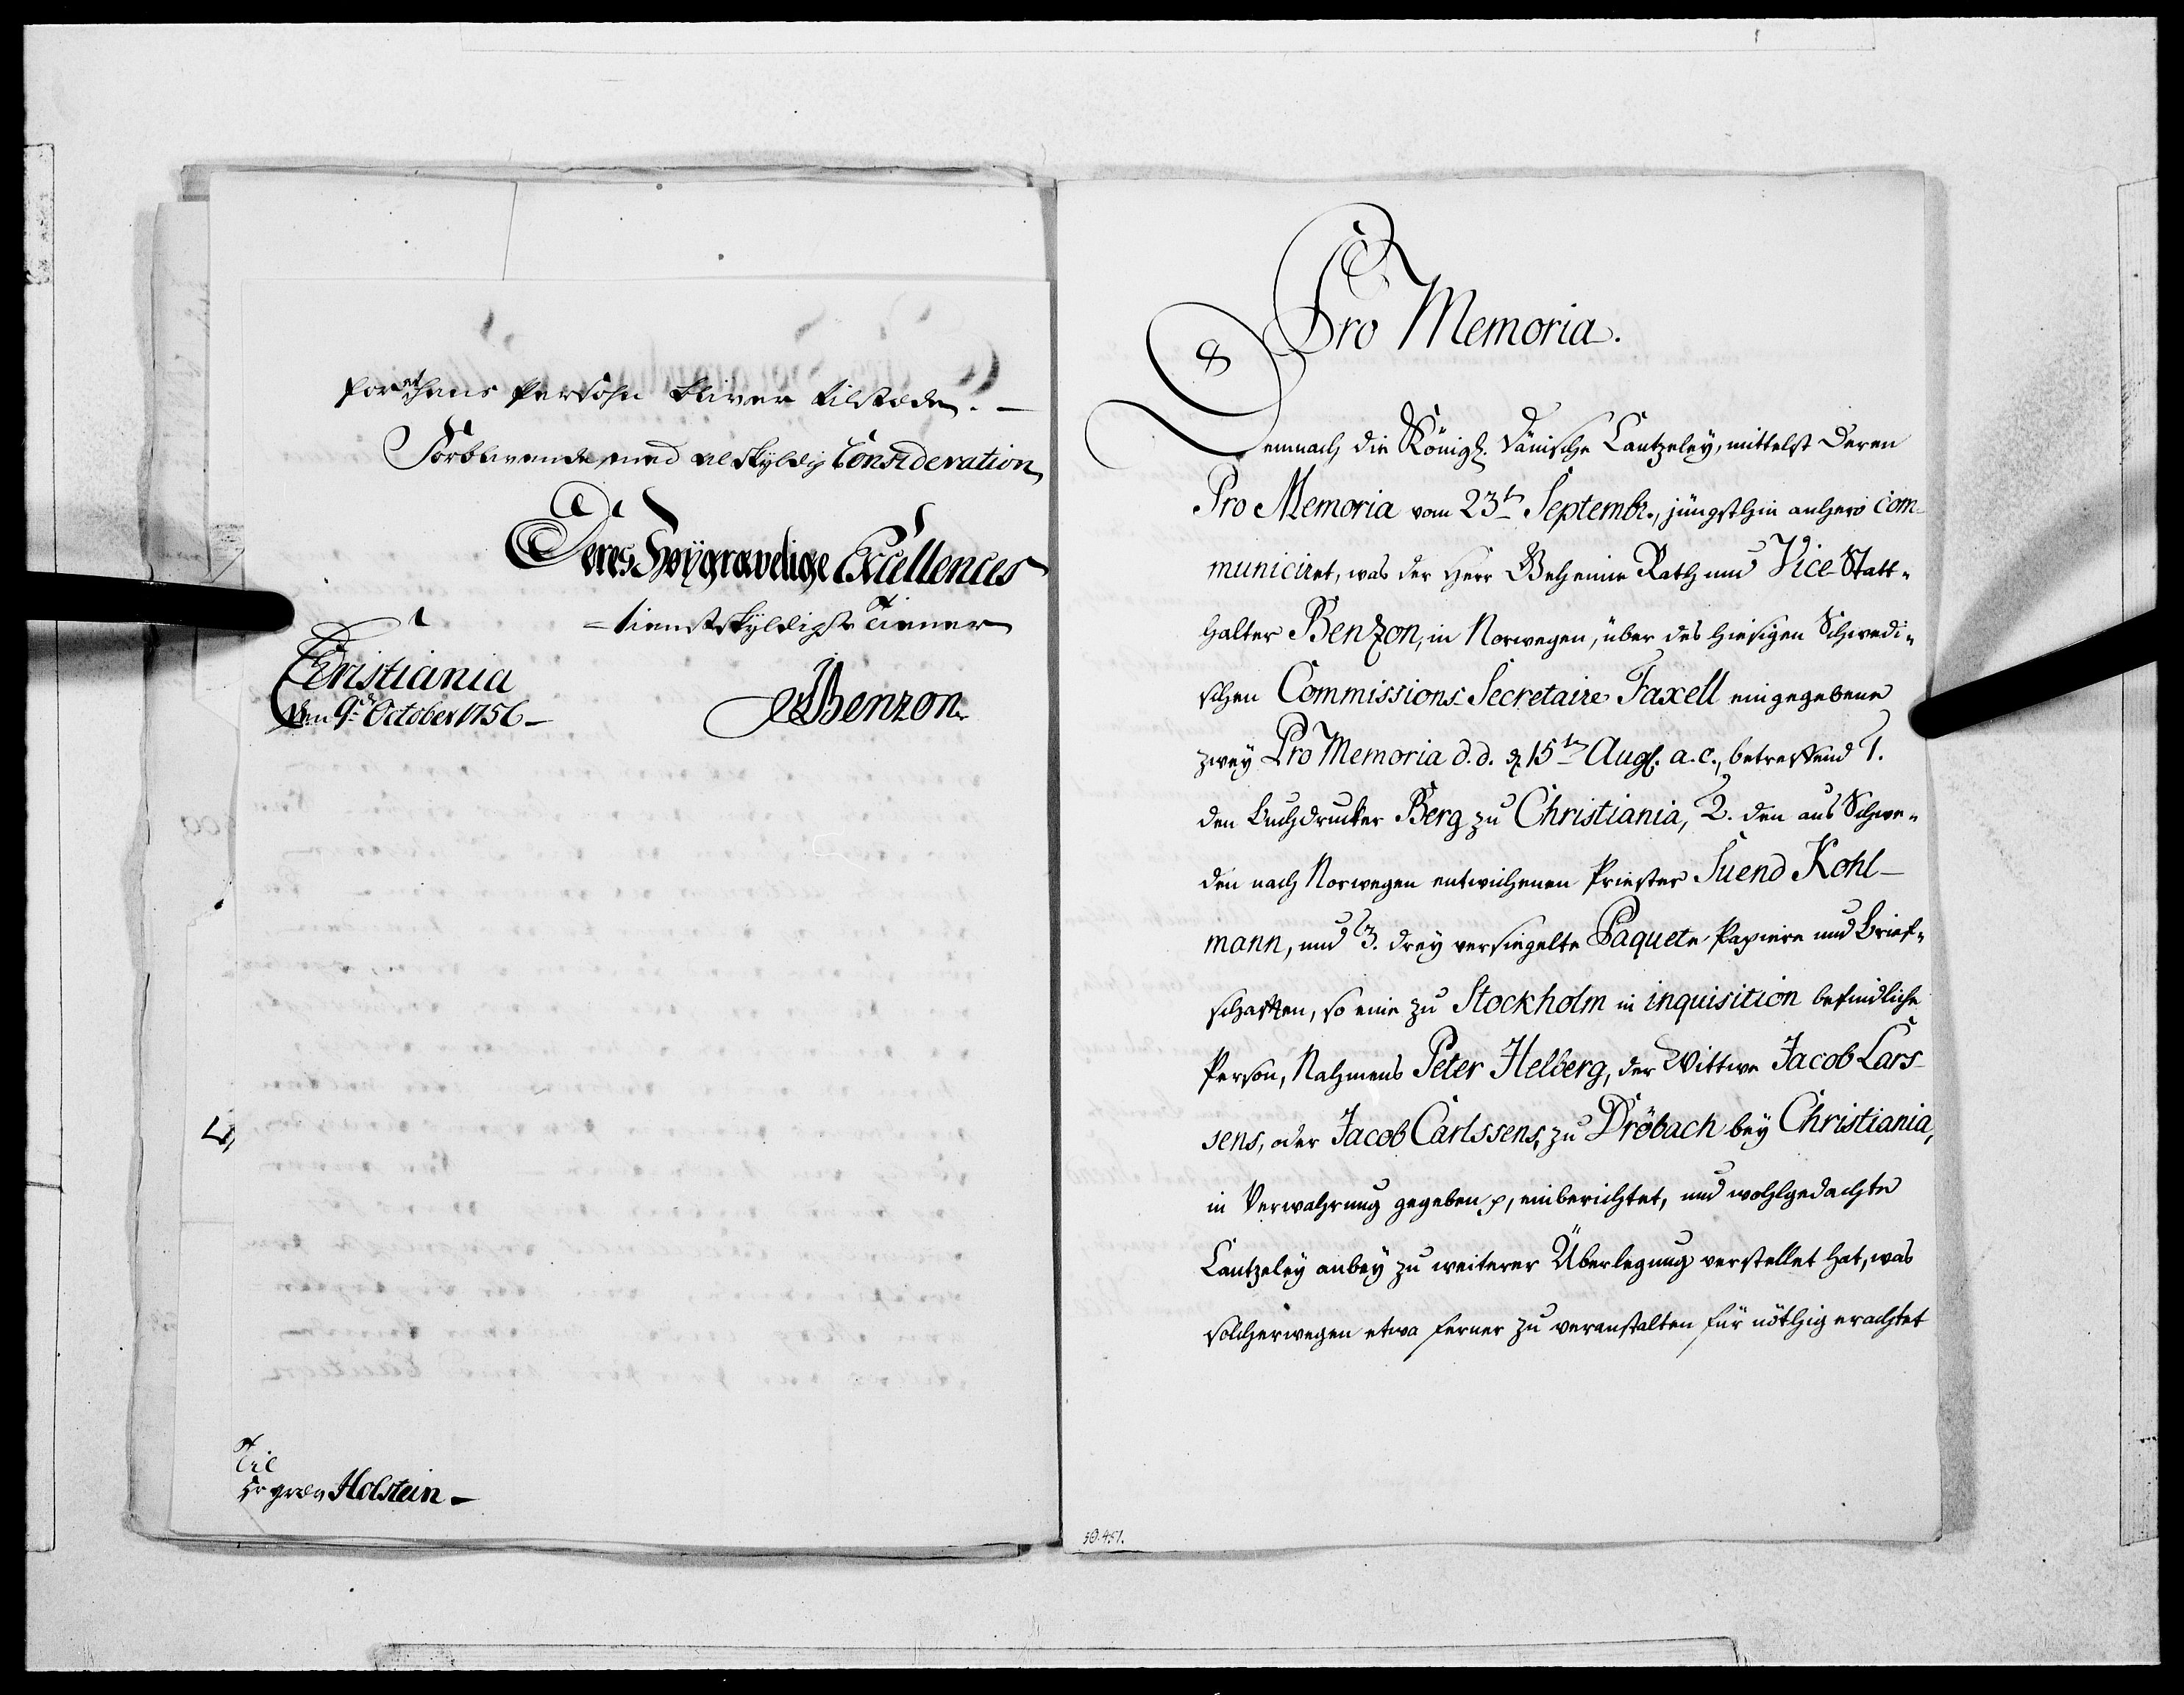 for at hans Persohn bliver tilstæde. —
Forblivende med all skyldig Consideration
Deres Høygrævelige Excellences
= tienstskyldigste Tiener
Christiania
den 9de October 1756 —
JBenzon
Til
Hr græv Holstein —
Pro Memoria.
Demnach die Königl. Dänische Cantzeley, mittelst deren
Pro Memoria vom 23ten Septembr., jüngsthin anhero com-
municiret, was der Herr Geheime Rath und Vice-Statt-
halter Benzon, in Norwegen, über des hiesigen Schwedi-
schen Commissions-Secretaire Faxell eingegebene
zwey Pro Memoria d. d. d. 15ten Aug. a. c., betreffend 1.
den Buchdrucker Berg zu Christiania, 2. den aus Schwe-
den nach Norwegen entwichenen Priester Suend Kohl-
mann, und 3. drey versiegelte Paquete Papiere und Brief-
schafften, so eine zu Stockholm in inquisition befindliche
Person, Nahmens Peter Helberg, der Wittwe Jacob Lars-
sens, oder Jacob Carlssens, zu Dröbach bey Christiania,
in Verwahrung gegeben p, einberichtet, und wohlgedachte
Cantzeley anbey zu weiterer Überlegung verstellet hat, was
solcherwegen etwa ferner zu veranstalten für nöthig erachtet
50.451.